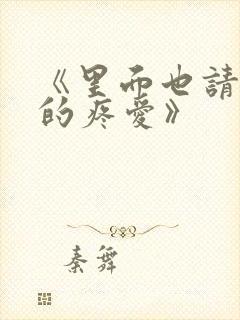 《里而也請
的疼愛》
秦舞